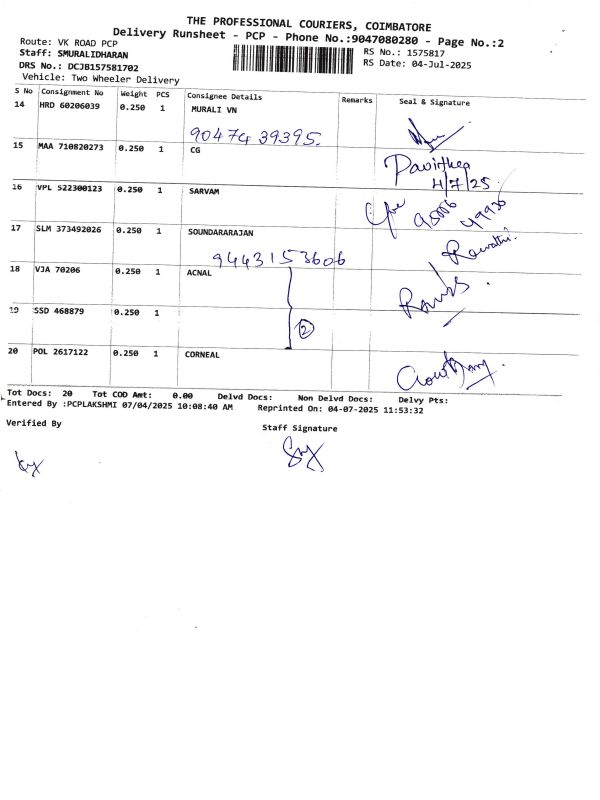 THE PROFESSIONAL COURIERS, COIMBATORE
Delivery Runsheet - PCP - Phone No.:9047080280 - Page No.:2
Route: VK ROAD PCP
RS No.: 1575817
Staff: SMURALIDHARAN
RS Date: 04-Jul-2025
DRS No.: DCJB157581702
Vehicle: Two Wheeler Delivery
S No Consignment No Weight PCS Consignee Details Remarks Seal & Signature
14 HRD 60206039 0.250 1 MURALI VN
90474 39395.
15 MAA 710820273 0.250 1 CG
Pavithra
4/7/25
16 VPL 522300123 0.250 1 SARVAM
95006 49936
17 SLM 373492026 0.250 1 SOUNDARARAJAN
Revathi.
9443153606
18 VJA 70206 0.250 1 ACNAL
19 SSD 468879 0.250 1
2
20 POL 2617122 0.250 1 CORNEAL
Tot Docs: 20 Tot COD Amt: 0.00 Delvd Docs: Non Delvd Docs: Delvy Pts:
Entered By :PCPLAKSHMI 07/04/2025 10:08:40 AM Reprinted On: 04-07-2025 11:53:32
Verified By
Staff Signature